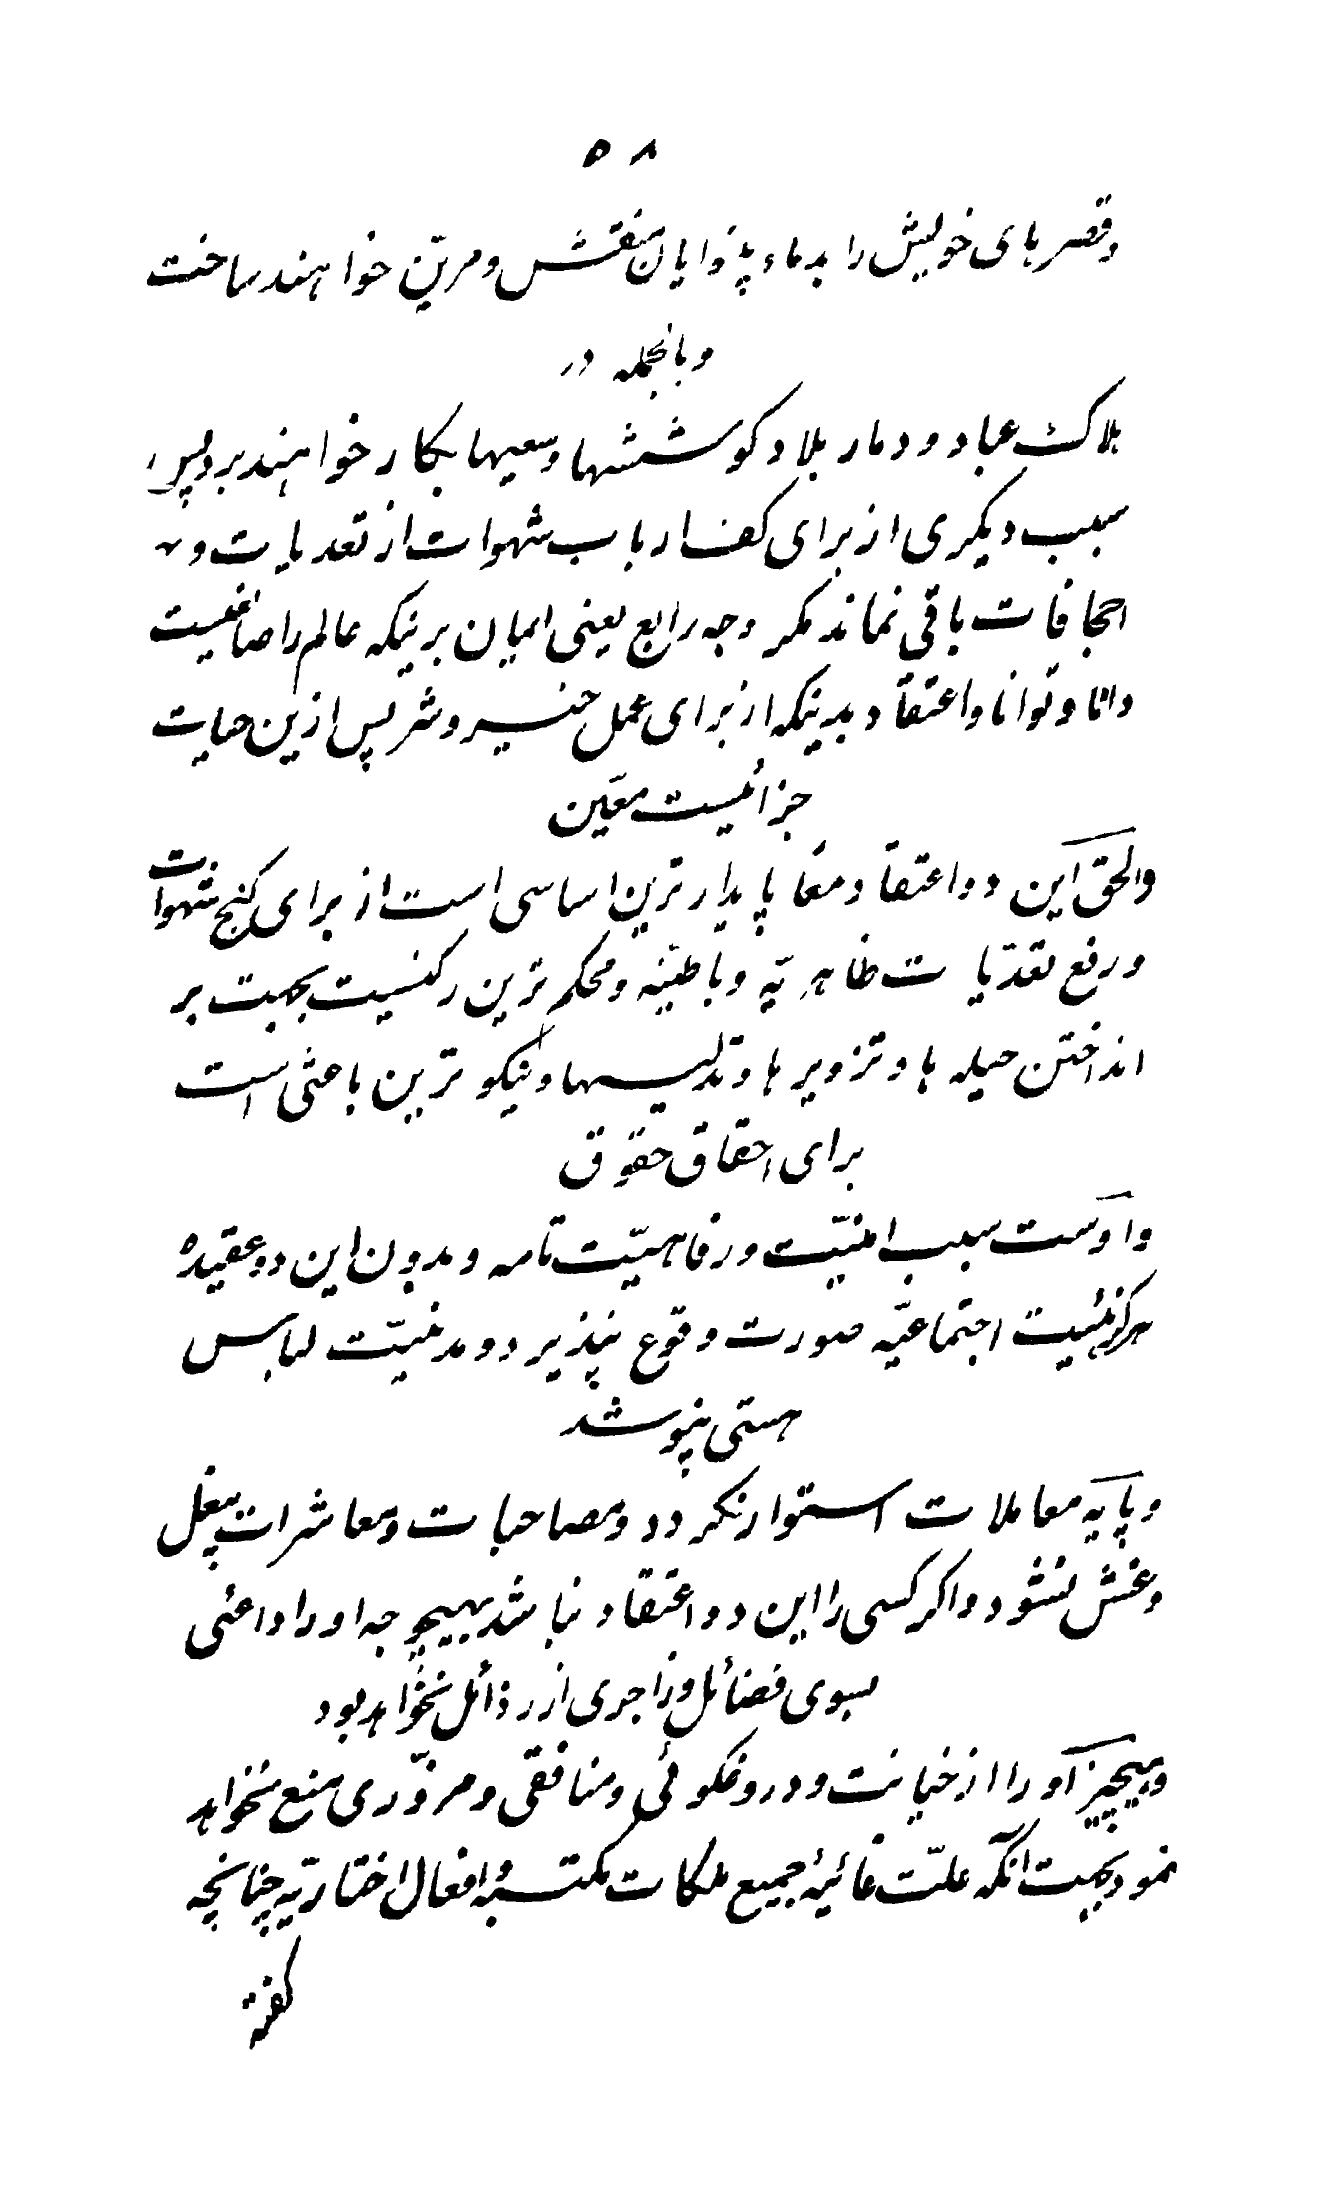 ۵۸
وقصرهای خویش را بدماء بینوایان منقش ومزیّن خواهند ساخت
وبالجمله در
هلاک عباد ودمار بلاد کوششها وسعیها بکار خواهند برد پس
سبب دیکری از برای کف ارباب شهوات از تعدیات و
اجحافات باقی نماند مکر وجه رابع یعنی ایمان برینکه عالم را صانعیست
دانا وتوانا واعتقاد بدینکه از برای عمل خیر وشر پس ازین حیات
جزائیست معیّن
والحق این دو اعتقاد معًا پایدارترین اساسی است از برای کبح شهوات
ورفع تعدّیات ظاهریّه وباطنیّه ومحکم ترین رکنیست بجهت بر
انداختن حیله ها وتزویرها وتدلیسها ونیکوترین باعثی است
برای احقاق حقوق
واوست سبب امنیّت ورفاهیّت تامه وبدون این دو عقیده
هرکز هئیت اجتماعیّه صورت وقوع نپذیرد ومدنیّت لباس
هستی نپوشد
وپایه معاملات استوار نکردد ومصاحبات ومعاشرات بیغل
وغش نشود واکر کسی را این دو اعتقاد نباشد بهیچوجه او را داعئی
بسوی فضائل وزاجری از رذائل نخواهد بود
وهیچچیز او را از خیانت ودروغکوئی ومنافقی ومزوّری منع نخواهد
نمود بجهت آنکه علّت غائیهٔ جمیع ملکات مکتسبه وافعال اختیاریّه چنانچه
کفته